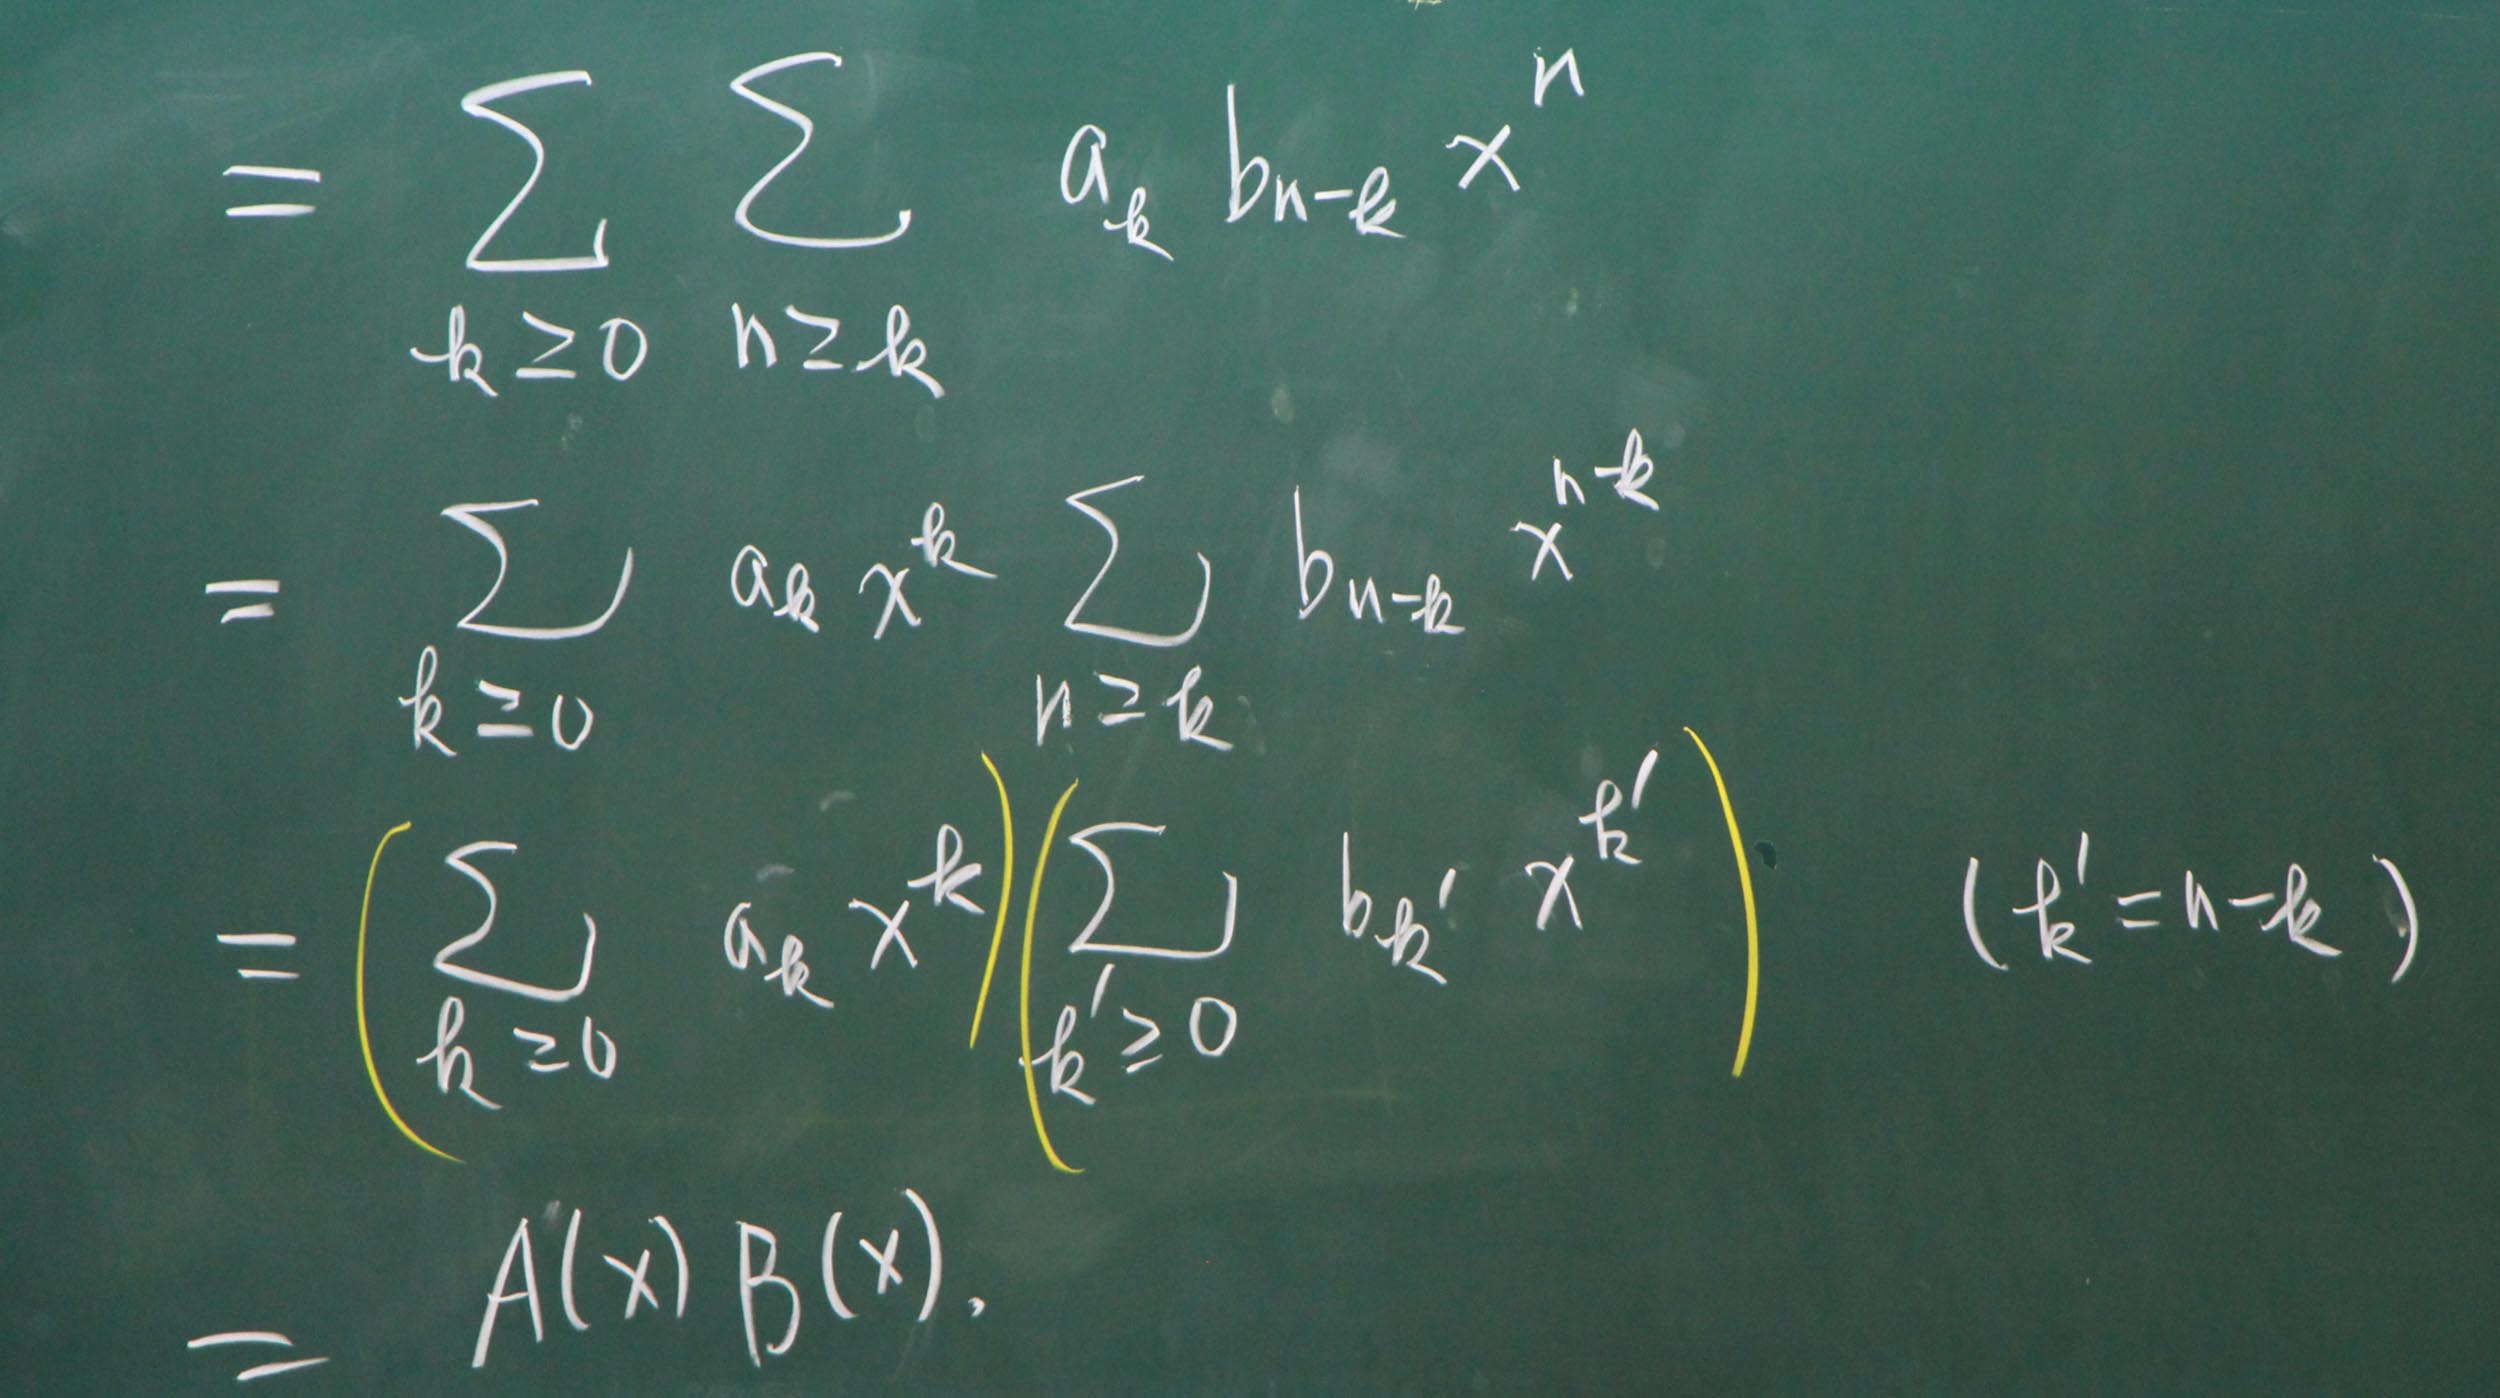 = ∑_{k≥0} ∑_{n≥k} a_k b_{n-k} x^n
= ∑_{k≥0} a_k x^k ∑_{n≥k} b_{n-k} x^{n-k}
= (∑_{k≥0} a_k x^k) (∑_{k'≥0} b_{k'} x^{k'}) (k' = n-k)
= A(x) B(x).